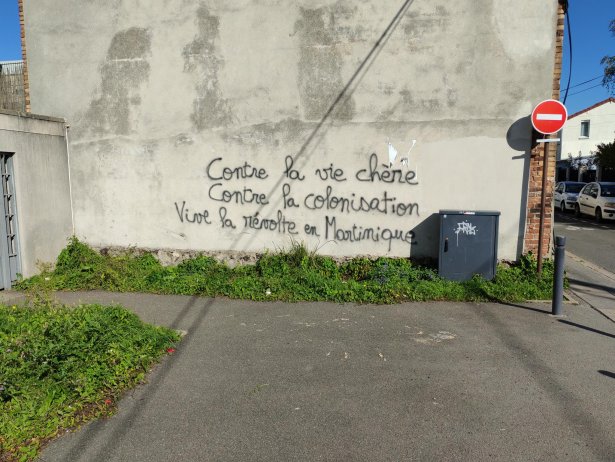 Contre la vie chère
Contre la colonisation
Vive la révolte en Martinique